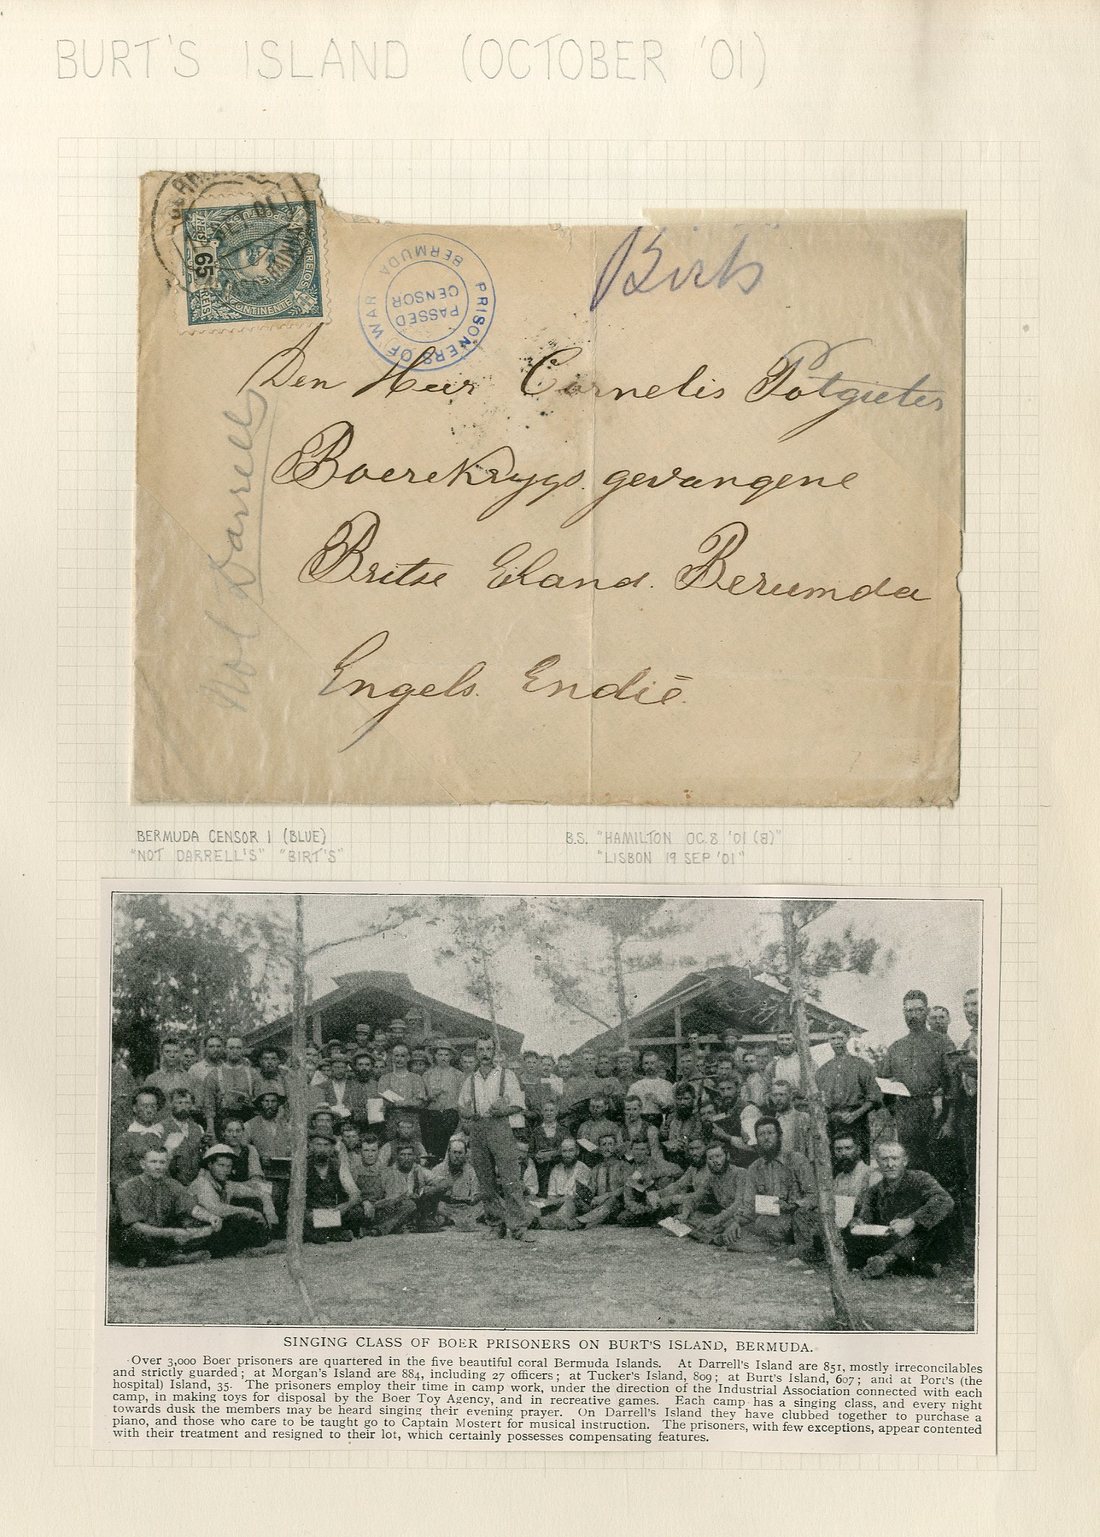 BURT'S ISLAND (OCTOBER '01)
65
REIS
CONTINENTE
PRISONERS OF WAR
BERMUDA
PASSED
CENSOR
Birts
Den Heer Cornelis Potgieter
Boerekrygs. gevangene
Britse Eiland. Berumda
Engels. Endië
Not Darrells
BERMUDA CENSOR 1 (BLUE)
"NOT DARRELL'S" "BIRT'S"
B.S. "HAMILTON OC.8 '01 (8)"
"LISBON 19 SEP '01"
SINGING CLASS OF BOER PRISONERS ON BURT'S ISLAND, BERMUDA.
Over 3,000 Boer prisoners are quartered in the five beautiful coral Bermuda Islands. At Darrell's Island are 851, mostly irreconcilables
and strictly guarded; at Morgan's Island are 884, including 27 officers; at Tucker's Island, 809; at Burt's Island, 607; and at Port's (the
hospital) Island, 35. The prisoners employ their time in camp work, under the direction of the Industrial Association connected with each
camp, in making toys for disposal by the Boer Toy Agency, and in recreative games. Each camp has a singing class, and every night
towards dusk the members may be heard singing their evening prayer. On Darrell's Island they have clubbed together to purchase a
piano, and those who care to be taught go to Captain Mostert for musical instruction. The prisoners, with few exceptions, appear contented
with their treatment and resigned to their lot, which certainly possesses compensating features.